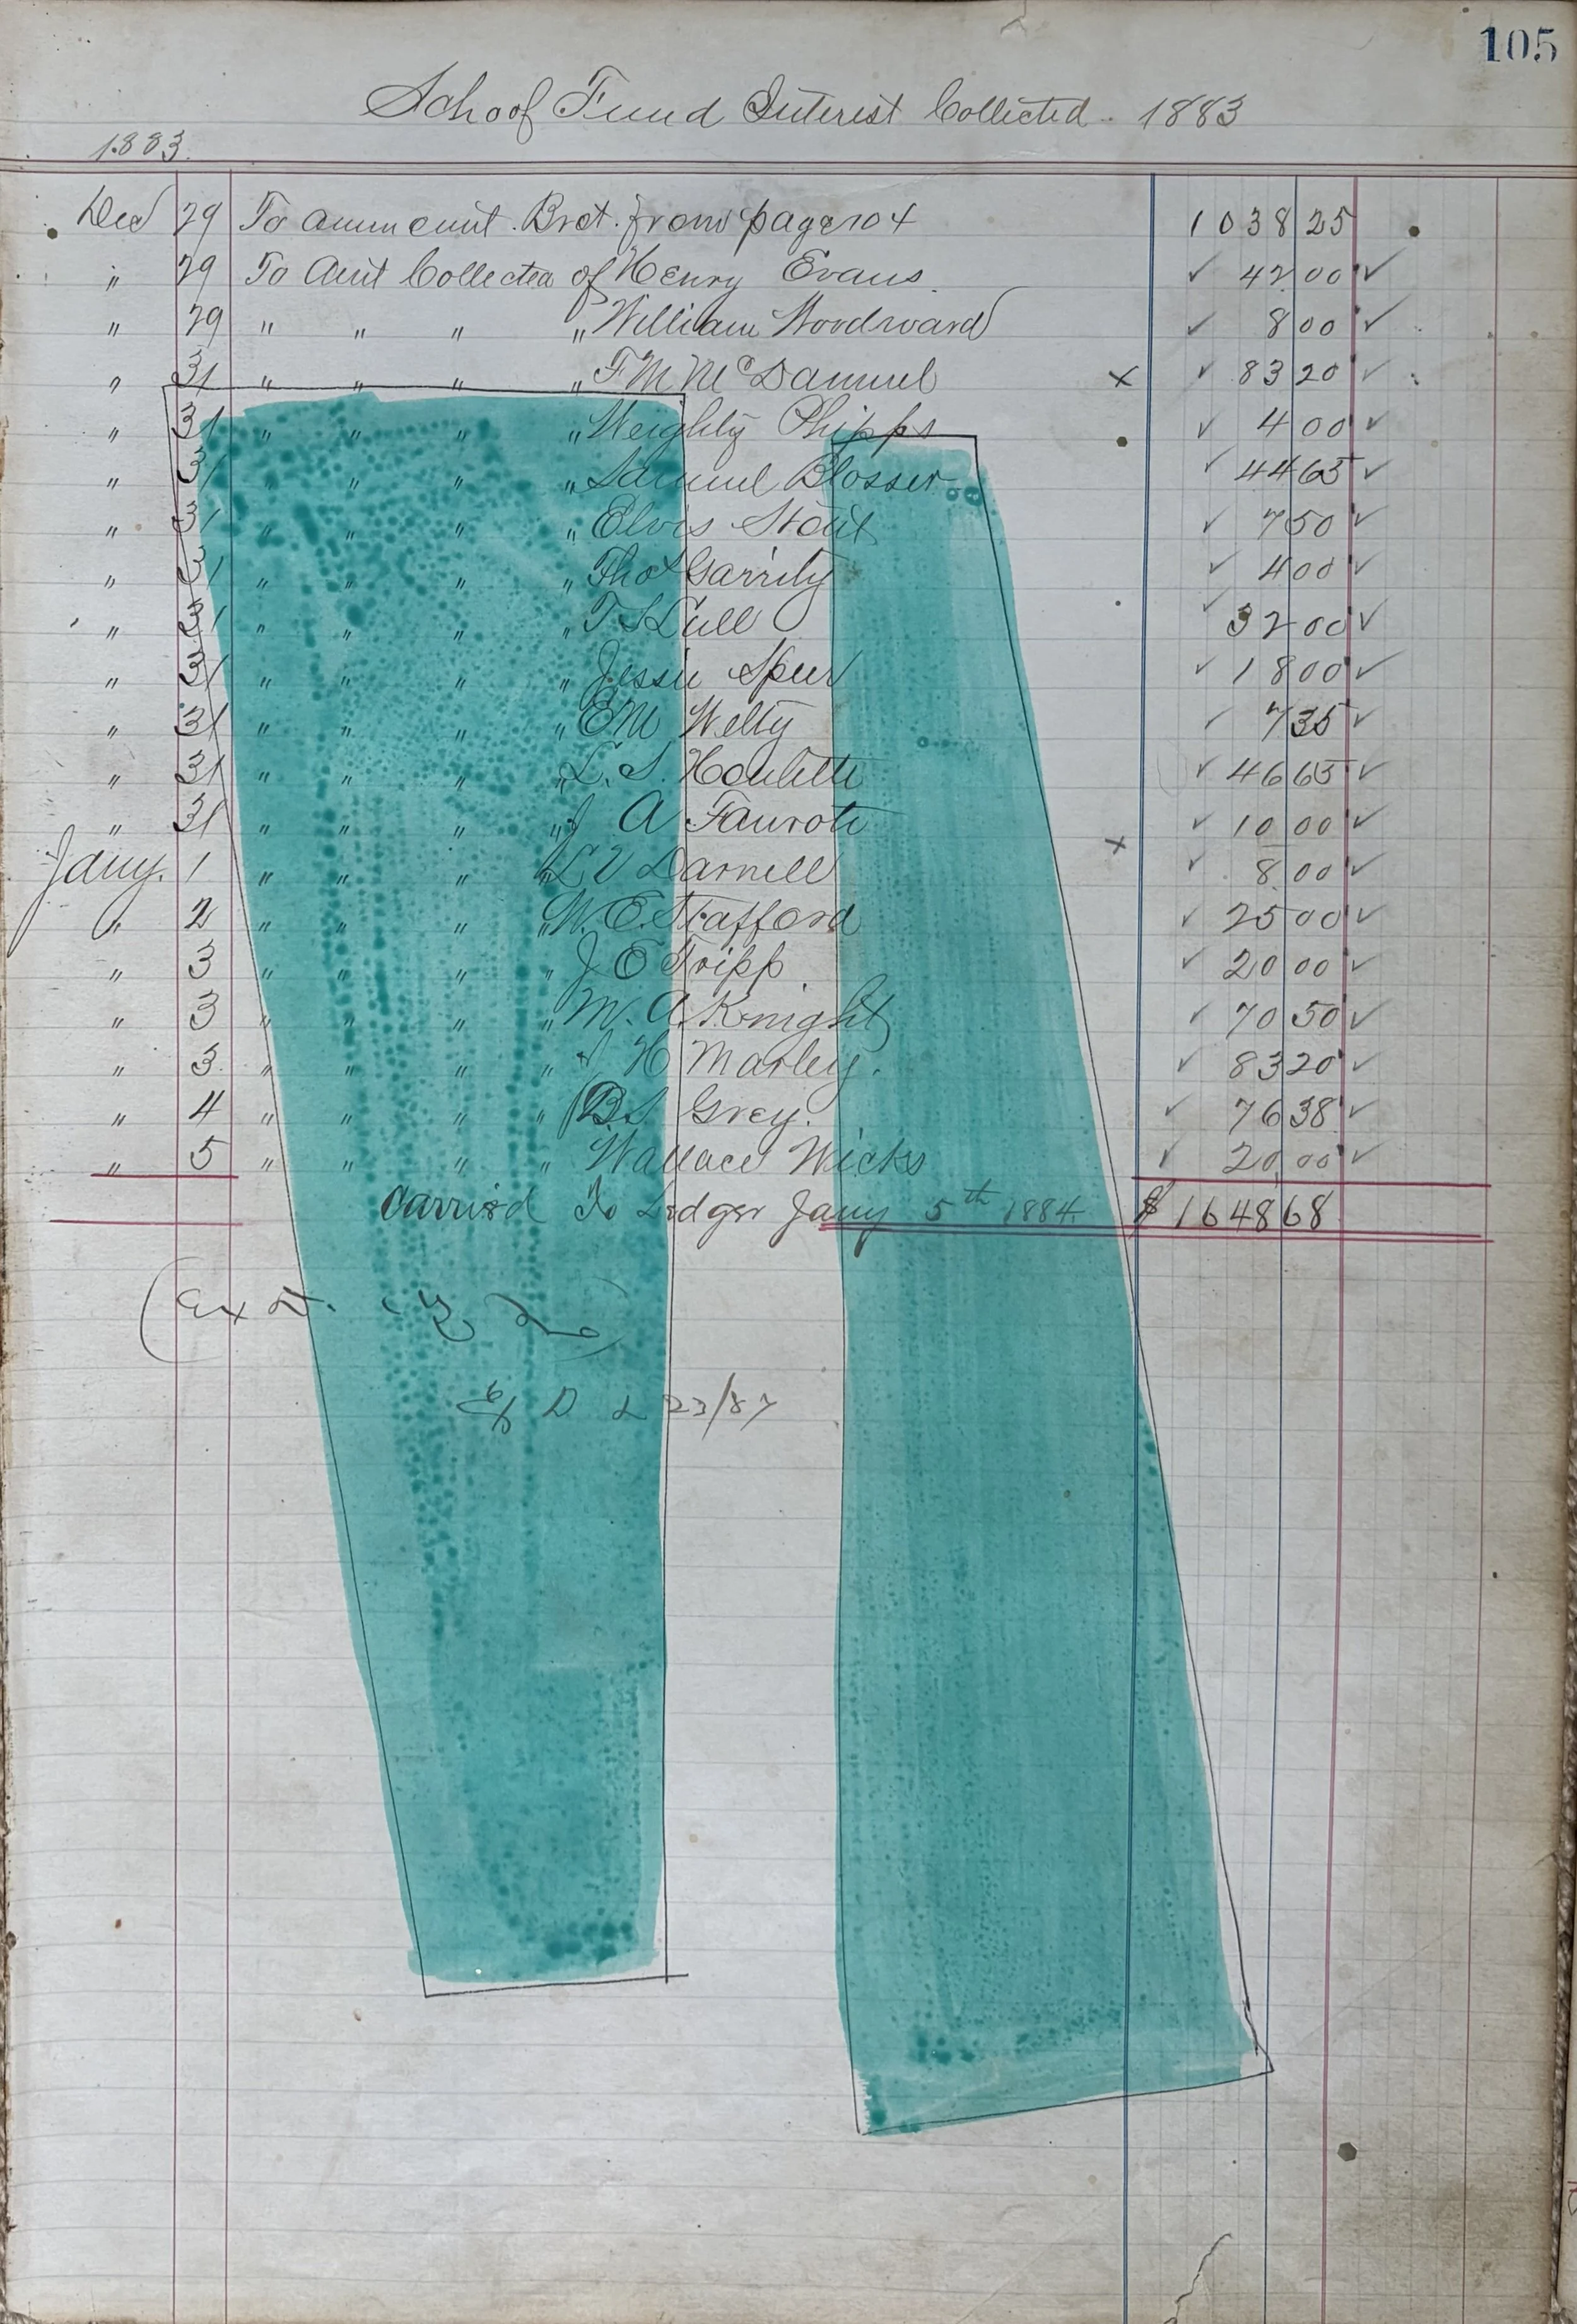 105
School Fund Interest Collected. 1883
1883.
Dec 29 To ammount Brot. from page 104 1038 25
" 29 To Amt Collected of Henry Evans. ✓ 42 00 ✓
" 29 " " " " William Woodward ✓ 8 00 ✓
" 31 " " " " F M McDannel x ✓ 83 20 ✓
" 31 " " " " Weighty Phipps ✓ 4 00 ✓
" 31 " " " " Samuel Blosser ✓ 44 65 ✓
" 31 " " " " Elvis Stout ✓ 7 50 ✓
" 31 " " " " Thos Garrity ✓ 4 00 ✓
" 31 " " " " T S Lull ✓ 32 00 ✓
" 31 " " " " Jessie Speer ✓ 18 00 ✓
" 31 " " " " E M Welty ✓ 7 35 ✓
" 31 " " " " L. S. Houlette ✓ 46 65 ✓
" 31 " " " " J A Faurote ✓ 10 00 ✓
Jany. 1 " " " " L V Darnell x ✓ 8 00 ✓
" 2 " " " " W. E. Stafford ✓ 25 00 ✓
" 3 " " " " J E Tripp ✓ 20 00 ✓
" 3 " " " " M. A. Knight ✓ 70 50 ✓
" 3 " " " " H Marley. ✓ 83 20 ✓
" 4 " " " " B. S. Grey. ✓ 76 38 ✓
" 5 " " " " Wallace Wicks ✓ 20 00 ✓
Carried To Ledger Jany 5th 1884. $ 1648 68
23/87